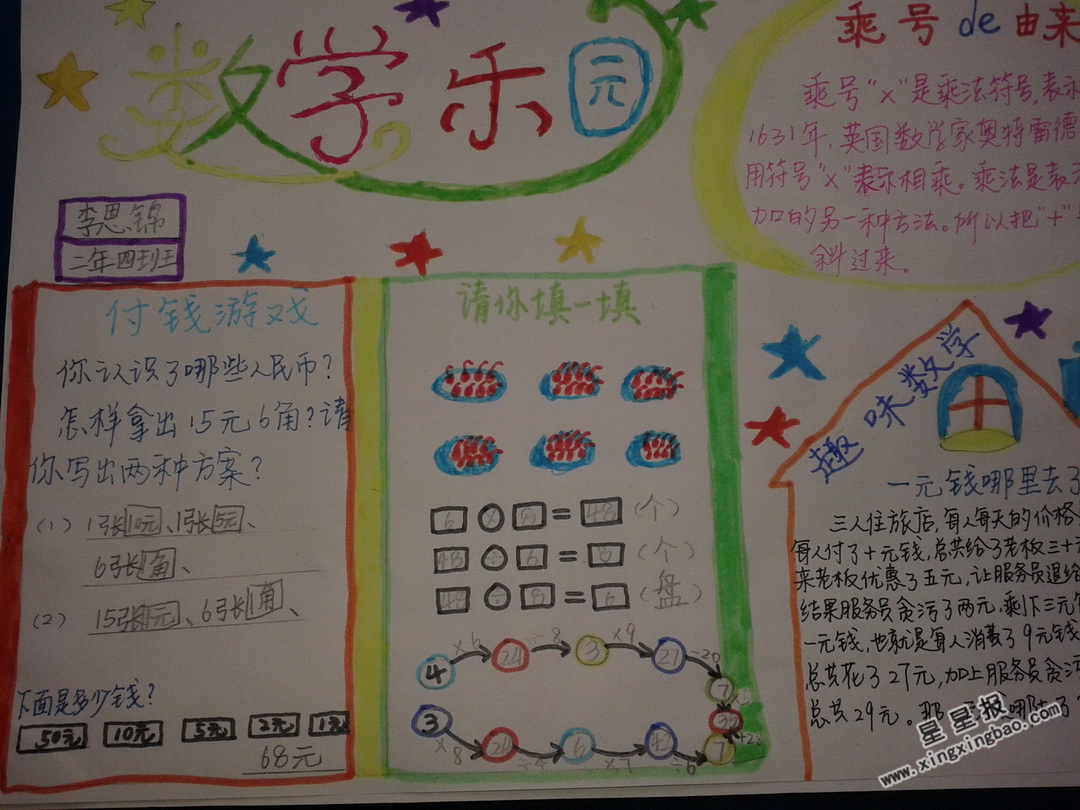 数学乐园
李思锦
二年四班
乘号de由来
乘号"×"是乘法符号,表示
1631年,英国数学家奥特雷德
用符号"×"表示相乘。乘法是表示
加的另一种方法。所以把"+"
斜过来。
付钱游戏
你认识了哪些人民币?
怎样拿出15元6角?请
你写出两种方案?
(1) 1张10元、1张5元、
6张1角、
(2) 15张1元、6张1角、
下面是多少钱?
50元 10元 5元 2元 1元
68元
请你填一填
6×8=48(个)
48÷6=8(个)
48÷8=6(盘)
4 ×6 24 ÷8 3 ×9 27 -20 7
3 ×8 24 ÷4 6 ×7 42 ÷6 7 +28
趣味数学
一元钱哪里去了
三人住旅店,每人每天的价格
每人付了十元钱,总共给了老板三十元
来老板优惠了五元,让服务员退给
结果服务员贪污了两元,剩下三元
一元钱,也就是每人消费了9元钱
总共花了27元,加上服务员贪污
总共29元。那一元
星星报
www.xingxingbao.com